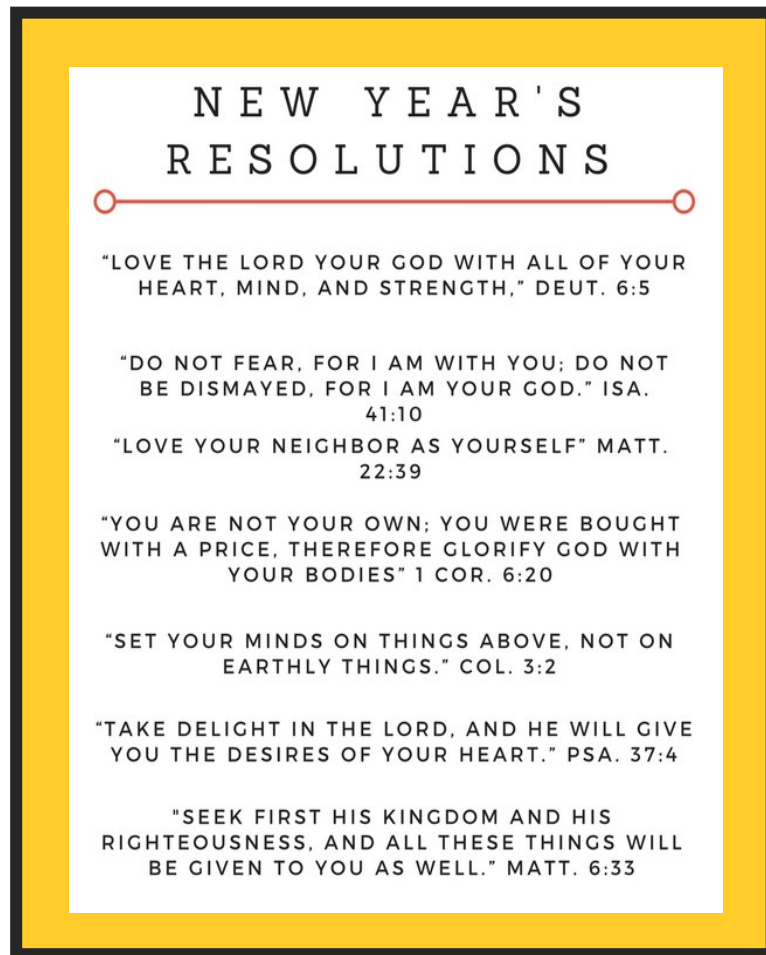 NEW YEAR'S
RESOLUTIONS
“LOVE THE LORD YOUR GOD WITH ALL OF YOUR
HEART, MIND, AND STRENGTH,” DEUT. 6:5
“DO NOT FEAR, FOR I AM WITH YOU; DO NOT
BE DISMAYED, FOR I AM YOUR GOD.” ISA.
41:10
“LOVE YOUR NEIGHBOR AS YOURSELF” MATT.
22:39
“YOU ARE NOT YOUR OWN; YOU WERE BOUGHT
WITH A PRICE, THEREFORE GLORIFY GOD WITH
YOUR BODIES” 1 COR. 6:20
“SET YOUR MINDS ON THINGS ABOVE, NOT ON
EARTHLY THINGS.” COL. 3:2
“TAKE DELIGHT IN THE LORD, AND HE WILL GIVE
YOU THE DESIRES OF YOUR HEART.” PSA. 37:4
"SEEK FIRST HIS KINGDOM AND HIS
RIGHTEOUSNESS, AND ALL THESE THINGS WILL
BE GIVEN TO YOU AS WELL.” MATT. 6:33